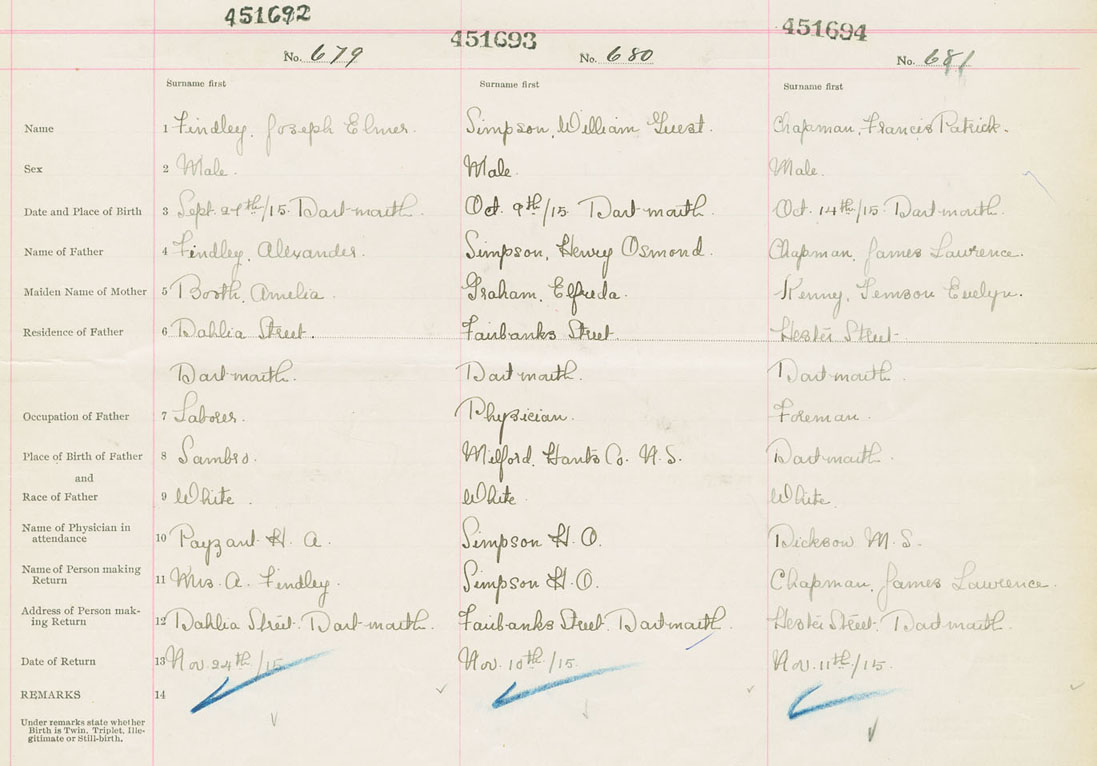 451692
451693
451694
No. 679
No. 680
No. 681
Surname first
Surname first
Surname first
Name 1 Findley, Joseph Elmer. Simpson, William Guest. Chapman, Francis Patrick.
Sex 2 Male. Male. Male.
Date and Place of Birth 3 Sept. 27th/15. Dartmouth. Oct. 9th/15 Dartmouth. Oct. 14th/15. Dartmouth.
Name of Father 4 Findley, Alexander. Simpson, Henry Osmond. Chapman, James Lawrence.
Maiden Name of Mother 5 Booth, Amelia. Graham, Elfreda. Kenny, Evelyn.
Residence of Father 6 Dahlia Street. Fairbanks Street. Hester Street.
Dartmouth. Dartmouth. Dartmouth.
Occupation of Father 7 Laborer. Physician. Foreman.
Place of Birth of Father 8 Sambro. Milford, Hants Co. N.S. Dartmouth.
and
Race of Father 9 White. White. White.
Name of Physician in
attendance 10 Payzant H. A. Simpson H. O. Dickson M. S.
Name of Person making
Return 11 Mrs. A. Findley. Simpson H. O. Chapman, James Lawrence.
Address of Person mak-
ing Return 12 Dahlia Street. Dartmouth. Fairbanks Street. Dartmouth. Hester Street. Dartmouth.
Date of Return 13 Nov. 24th/15 Nov. 10th/15. Nov. 11th/15.
REMARKS 14
Under remarks state whether
Birth is Twin, Triplet, Ille-
gitimate or Still-birth.